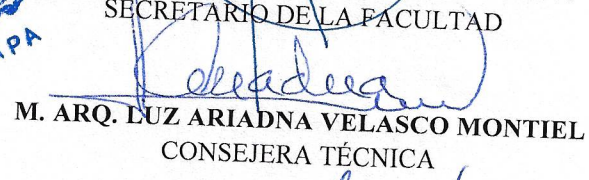 SECRETARIO DE LA FACULTAD
M. ARQ. LUZ ARIADNA VELASCO MONTIEL
CONSEJERA TÉCNICA